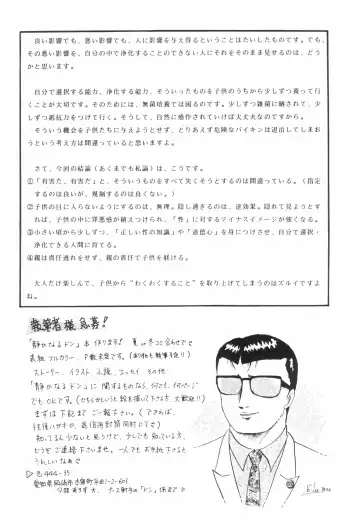 良い影響でも、悪い影響でも、人に影響を与え得るということはたいしたものです。でも、
その悪い影響を、自分の中で浄化することのできない人にそれをそのまま見せるのは、どう
かと思います。
自分で選択する能力、浄化する能力、そういったものを子供のうちから少しずつ養って行
くことが大切です。そのためには、無菌培養では困るのです。少しずつ雑菌に晒されて、少
しずつ抵抗力をつけて行く。そうして、自然に感作されていけば大丈夫なのですから。
そういう機会を子供たちに与えようとせず、とりあえず危険なバイキンは退治してしまお
うという考え方は間違っていると思いますよ。
さて、今回の結論（あくまでも私論）は、こうです。
①「有害だ、有害だ」と、そういうものをすべて失くそうとするのは間違っている。（指定
するのは良いが、規制するのは良くない。）
②子供の目に入らないようにするのは、無理。隠し過ぎるのは、逆効果。隠れて見ようとす
れば、子供の中に罪悪感が積えつけられ、「性」に対するマイナスイメージが強くなる。
③小さい頃から少しずつ、「正しい性の知識」や「道徳心」を身につけさせ、自分で選択・
浄化できる人間に育てる。
④親は責任逃れをせず、親の責任で子供を躾ける。
大人だけ楽しんで、子供から“わくわくすること”を取り上げてしまうのはズルイですよ
ね。
執筆者様 急募！
「静かなるドン」本 作ります！ 夏か冬に合わせて
表紙フルカラー、
ストーリー、イラスト、小説、エッセイ その他
「静かなるドン」に関するものなら、何でも、何ページ
でもOKです。
まずは下記までご一報下さい。（できれば、
往復ハガキや、返信用封筒同封にて）
知ってる人少ないと思うけど、少しでも知っている方、
どうぞご連絡下さいませ。一人でもお手紙下さると
うれしいなあ
〒444-35